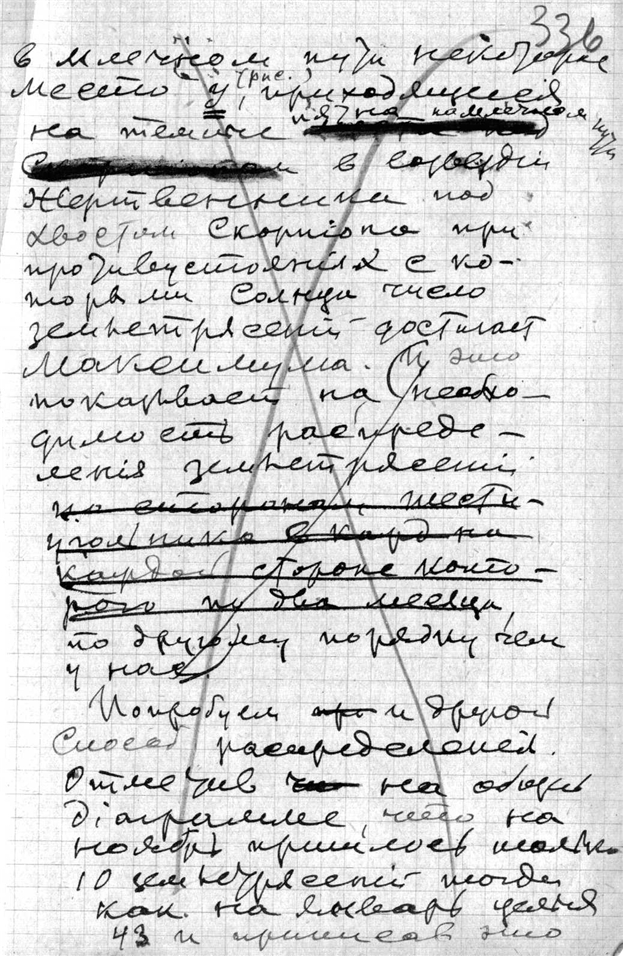 336
в млечном пути некоторое
место У (рис. ), приходящееся
на темные пятна на млечном пути
в созвездии
Жертвенника под
хвостом Скорпіона при
противустояніях с ко-
торыми Солнца число
землетрясеній достигает
максимума. (И это
показывает на необхо-
димость распреде-
ленія землетрясеній
по сторонам шести-
угольника в кард на
каждой стороне кото-
рого по два месяца,
по другому порядку чем
у нас.)
Попробуем и другой
способ распределенія.
Отметив на общей
діаграмме, что на
ноябрь пришлось только
10 землетрясеній тогда
как на январь целыя
43 и приписав это